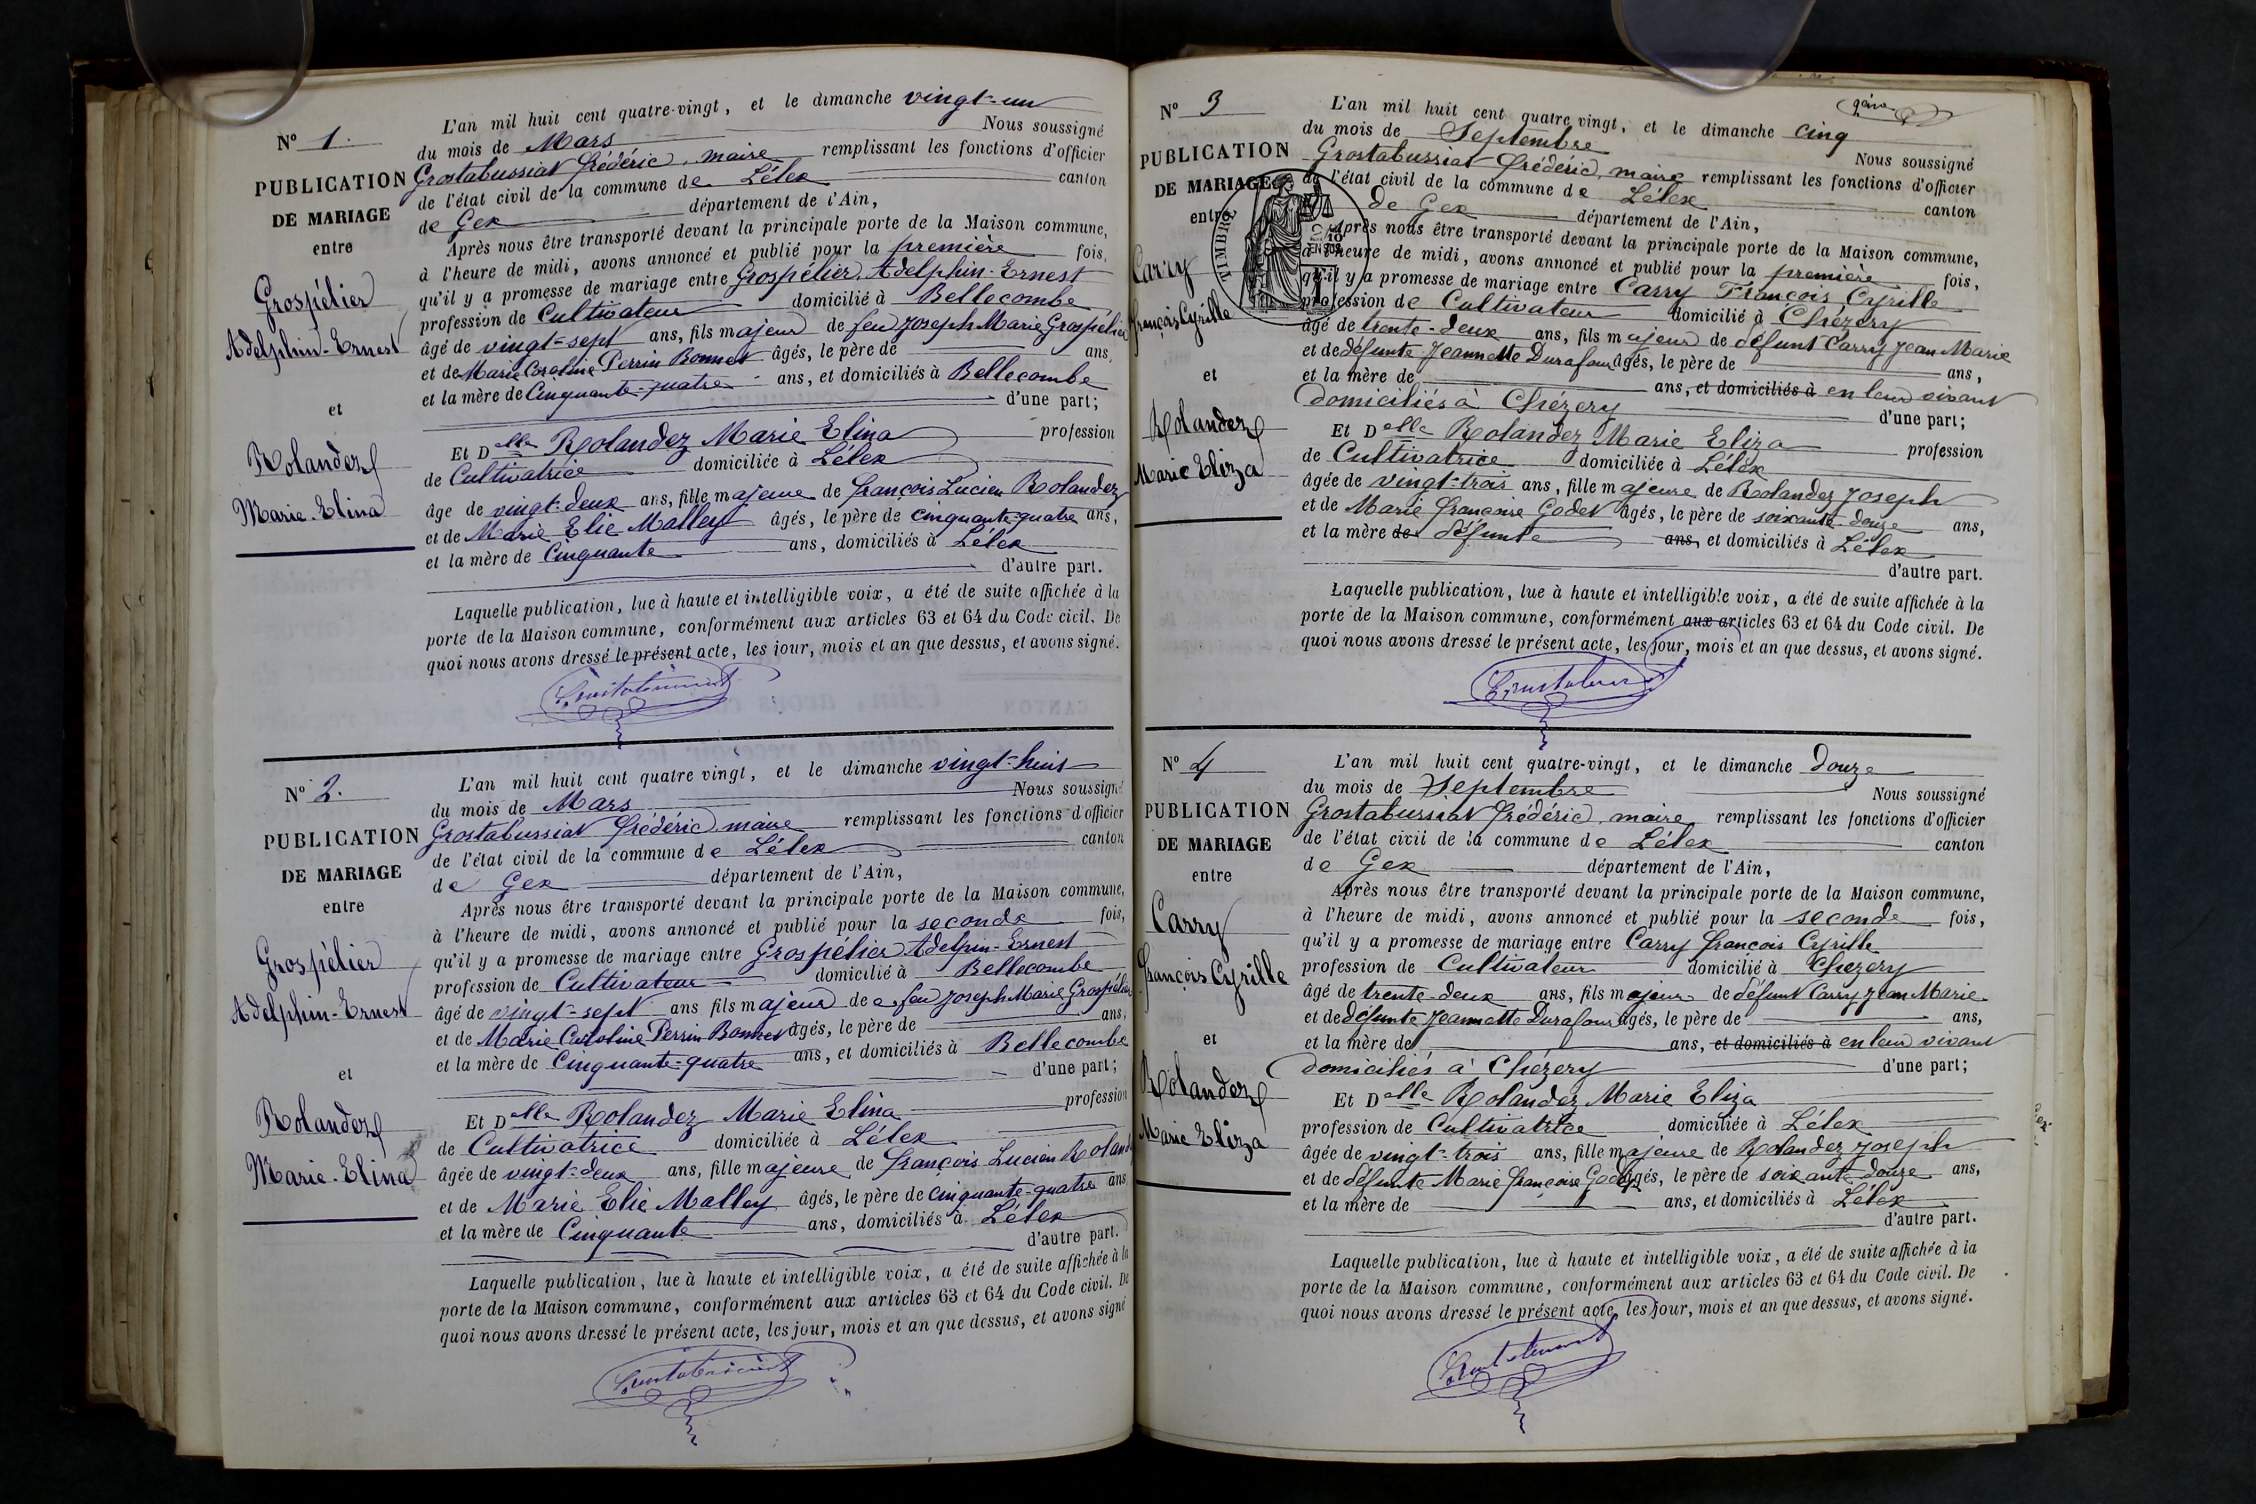 N° 1.
PUBLICATION
DE MARIAGE
entre
Grospélier
Adelphin-Ernest
et
Rolandez
Marie-Elina
L'an mil huit cent quatre-vingt, et le dimanche vingt-un
du mois de Mars Nous soussigné
Grostabussiat Frédéric, maire remplissant les fonctions d'officier
de l'état civil de la commune de Lélex canton
de Gex département de l'Ain,
Après nous être transporté devant la principale porte de la Maison commune,
à l'heure de midi, avons annoncé et publié pour la première fois,
qu'il y a promesse de mariage entre Grospélier Adelphin-Ernest
profession de Cultivateur domicilié à Bellecombe
âgé de vingt-sept ans, fils majeur de feu Joseph Marie Grospélier
et de Marie Caroline Perrin Bonnet âgés, le père de ans,
et la mère de Cinquante-quatre ans, et domiciliés à Bellecombe
d'une part;
Et Delle Rolandez Marie Elina profession
de Cultivatrice domiciliée à Lélex
âge de vingt-deux ans, fille majeure de François Lucien Rolandez
et de Marie Elie Malley âgés, le père de cinquante-quatre ans,
et la mère de Cinquante ans, domiciliés à Lélex
d'autre part.
Laquelle publication, lue à haute et intelligible voix, a été de suite affichée à la
porte de la Maison commune, conformément aux articles 63 et 64 du Code civil. De
quoi nous avons dressé le présent acte, les jour, mois et an que dessus, et avons signé.
N° 2.
PUBLICATION
DE MARIAGE
entre
Grospélier
Adelphin-Ernest
et
Rolandez
Marie-Elina
L'an mil huit cent quatre vingt, et le dimanche vingt-huit
du mois de Mars Nous soussigné
Grostabussiat Frédéric, maire remplissant les fonctions d'officier
de l'état civil de la commune de Lélex canton
de Gex département de l'Ain,
Après nous être transporté devant la principale porte de la Maison commune,
à l'heure de midi, avons annoncé et publié pour la seconde fois,
qu'il y a promesse de mariage entre Grospélier Adelphin-Ernest
profession de Cultivateur domicilié à Bellecombe
âgé de vingt-sept ans fils majeur de feu Joseph Marie Grospélier
et de Marie Caroline Perrin Bonnet âgés, le père de ans,
et la mère de Cinquante-quatre ans, et domiciliés à Bellecombe
d'une part;
Et Delle Rolandez Marie Elina profession
de Cultivatrice domiciliée à Lélex
âgée de vingt-deux ans, fille majeure de François Lucien Roland
et de Marie Elie Malley âgés, le père de cinquante-quatre ans
et la mère de Cinquante ans, domiciliés à Lélex
d'autre part.
Laquelle publication, lue à haute et intelligible voix, a été de suite affichée à la
porte de la Maison commune, conformément aux articles 63 et 64 du Code civil. De
quoi nous avons dressé le présent acte, les jour, mois et an que dessus, et avons signé
N° 3
PUBLICATION
DE MARIAGE
entre
Carry
François Cyrille
et
Rolandez
Marie Eliza
TIMBRE
2/10
EN SUS
L'an mil huit cent quatre vingt, et le dimanche cinq
du mois de Septembre Nous soussigné
Grostabussiat Frédéric, maire remplissant les fonctions d'officier
de l'état civil de la commune de Lélex canton
de Gex département de l'Ain,
Après nous être transporté devant la principale porte de la Maison commune,
à l'heure de midi, avons annoncé et publié pour la première fois,
qu'il y a promesse de mariage entre Carry François Cyrille
profession de Cultivateur domicilié à Chézery
âgé de trente-deux ans, fils majeur de défunt Carry Jean Marie
et de défunte Jeannette Durafour âgés, le père de ans,
et la mère de ans, et domiciliés à en leur vivant
domiciliés à Chézery d'une part;
Et Delle Rolandez Marie Eliza profession
de Cultivatrice domiciliée à Lélex
âgée de vingt-trois ans, fille majeure de Rolandez Joseph
et de Marie Françoise Godet âgés, le père de soixante-douze ans,
et la mère de Défunte ans, et domiciliés à Lélex
d'autre part.
Laquelle publication, lue à haute et intelligible voix, a été de suite affichée à la
porte de la Maison commune, conformément aux articles 63 et 64 du Code civil. De
quoi nous avons dressé le présent acte, les jour, mois et an que dessus, et avons signé.
N° 4
PUBLICATION
DE MARIAGE
entre
Carry
François Cyrille
et
Rolandez
Marie Eliza
L'an mil huit cent quatre-vingt, et le dimanche Douze
du mois de Septembre Nous soussigné
Grostabussiat Frédéric, maire remplissant les fonctions d'officier
de l'état civil de la commune de Lélex canton
de Gex département de l'Ain,
Après nous être transporté devant la principale porte de la Maison commune,
à l'heure de midi, avons annoncé et publié pour la seconde fois,
qu'il y a promesse de mariage entre Carry François Cyrille
profession de Cultivateur domicilié à Chezery
âgé de trente-deux ans, fils majeur de défunt Carry Jean Marie
et de défunte Jeannette Durafour âgés, le père de ans,
et la mère de ans, et domiciliés à en leur vivant
domiciliés à Chézery d'une part;
Et Delle Rolandez Marie Eliza
profession de Cultivatrice domiciliée à Lélex
âgée de vingt-trois ans, fille majeure de Rolandez Joseph
et de défunte Marie Françoise Godet âgés, le père de soixante-douze ans,
et la mère de ans, et domiciliés à Lélex
d'autre part.
Laquelle publication, lue à haute et intelligible voix, a été de suite affichée à la
porte de la Maison commune, conformément aux articles 63 et 64 du Code civil. De
quoi nous avons dressé le présent acte, les jour, mois et an que dessus, et avons signé.